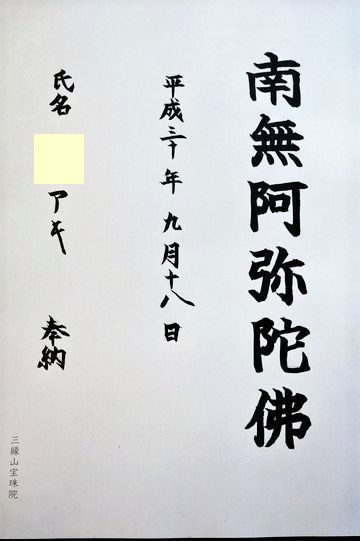 南無阿弥陀佛
平成三十年九月十八日
氏名 アキ 奉納
三縁山宝珠院